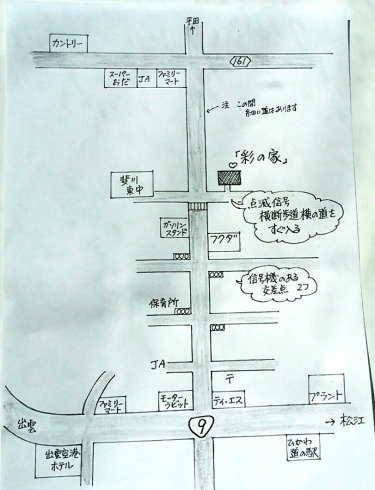 平田
カントリー
161
スーパー
おだ
JA
ファミリー
マート
注 この間
細い道はあります
「彩の家」
斐川
東中
点滅信号
横断歩道横の道を
すぐ入る
ガソリン
スタンド
フクダ
信号機のある
交差点 2つ
保育所
JA
〒
プラント
ファミリー
マート
モーター
ラビット
ティ・エス
出雲
9
→ 松江
出雲空港
ホテル
ひかわ
道の駅